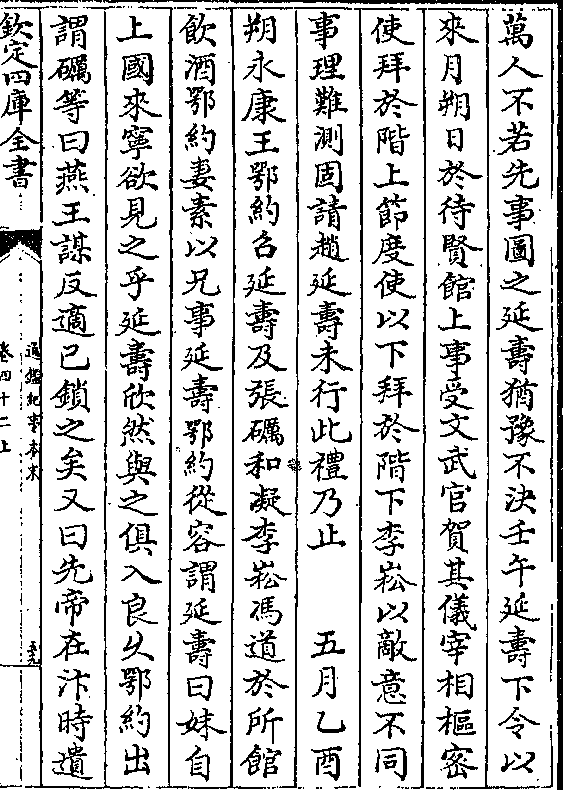 萬人不若先事圖之延壽猶豫不決壬午延壽下令以
來月朔日於待賢館上事受文武官賀其儀宰相樞密
使拜於階上節度使以下拜於階下李崧以敵意不同
事理難測固請趙延壽未行此禮乃止　　五月乙酉
朔永康王鄂約召延壽及張礪和凝李崧馮道於所館
飲酒鄂約妻素以兄事延壽鄂約從容謂延壽曰妹自
上國來寧欲見之乎延壽欣然與之俱入良久鄂約出
謂礪等曰燕王謀反適已鎖之矣又曰先帝在汴時遺
欽定四庫全書
通鑑紀事本末
卷四十二上